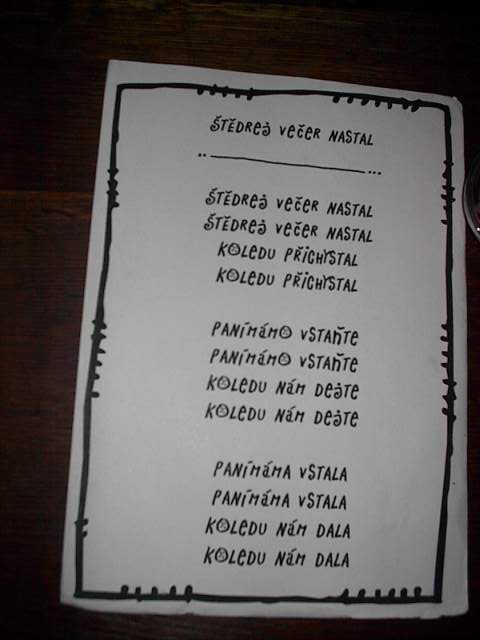 ŠTĚDREJ VEČER NASTAL
ŠTĚDREJ VEČER NASTAL
ŠTĚDREJ VEČER NASTAL
KOLEDU PŘICHYSTAL
KOLEDU PŘICHYSTAL
PANÍMÁMO VSTAŇTE
PANÍMÁMO VSTAŇTE
KOLEDU NÁM DEJTE
KOLEDU NÁM DEJTE
PANÍMÁMA VSTALA
PANÍMÁMA VSTALA
KOLEDU NÁM DALA
KOLEDU NÁM DALA